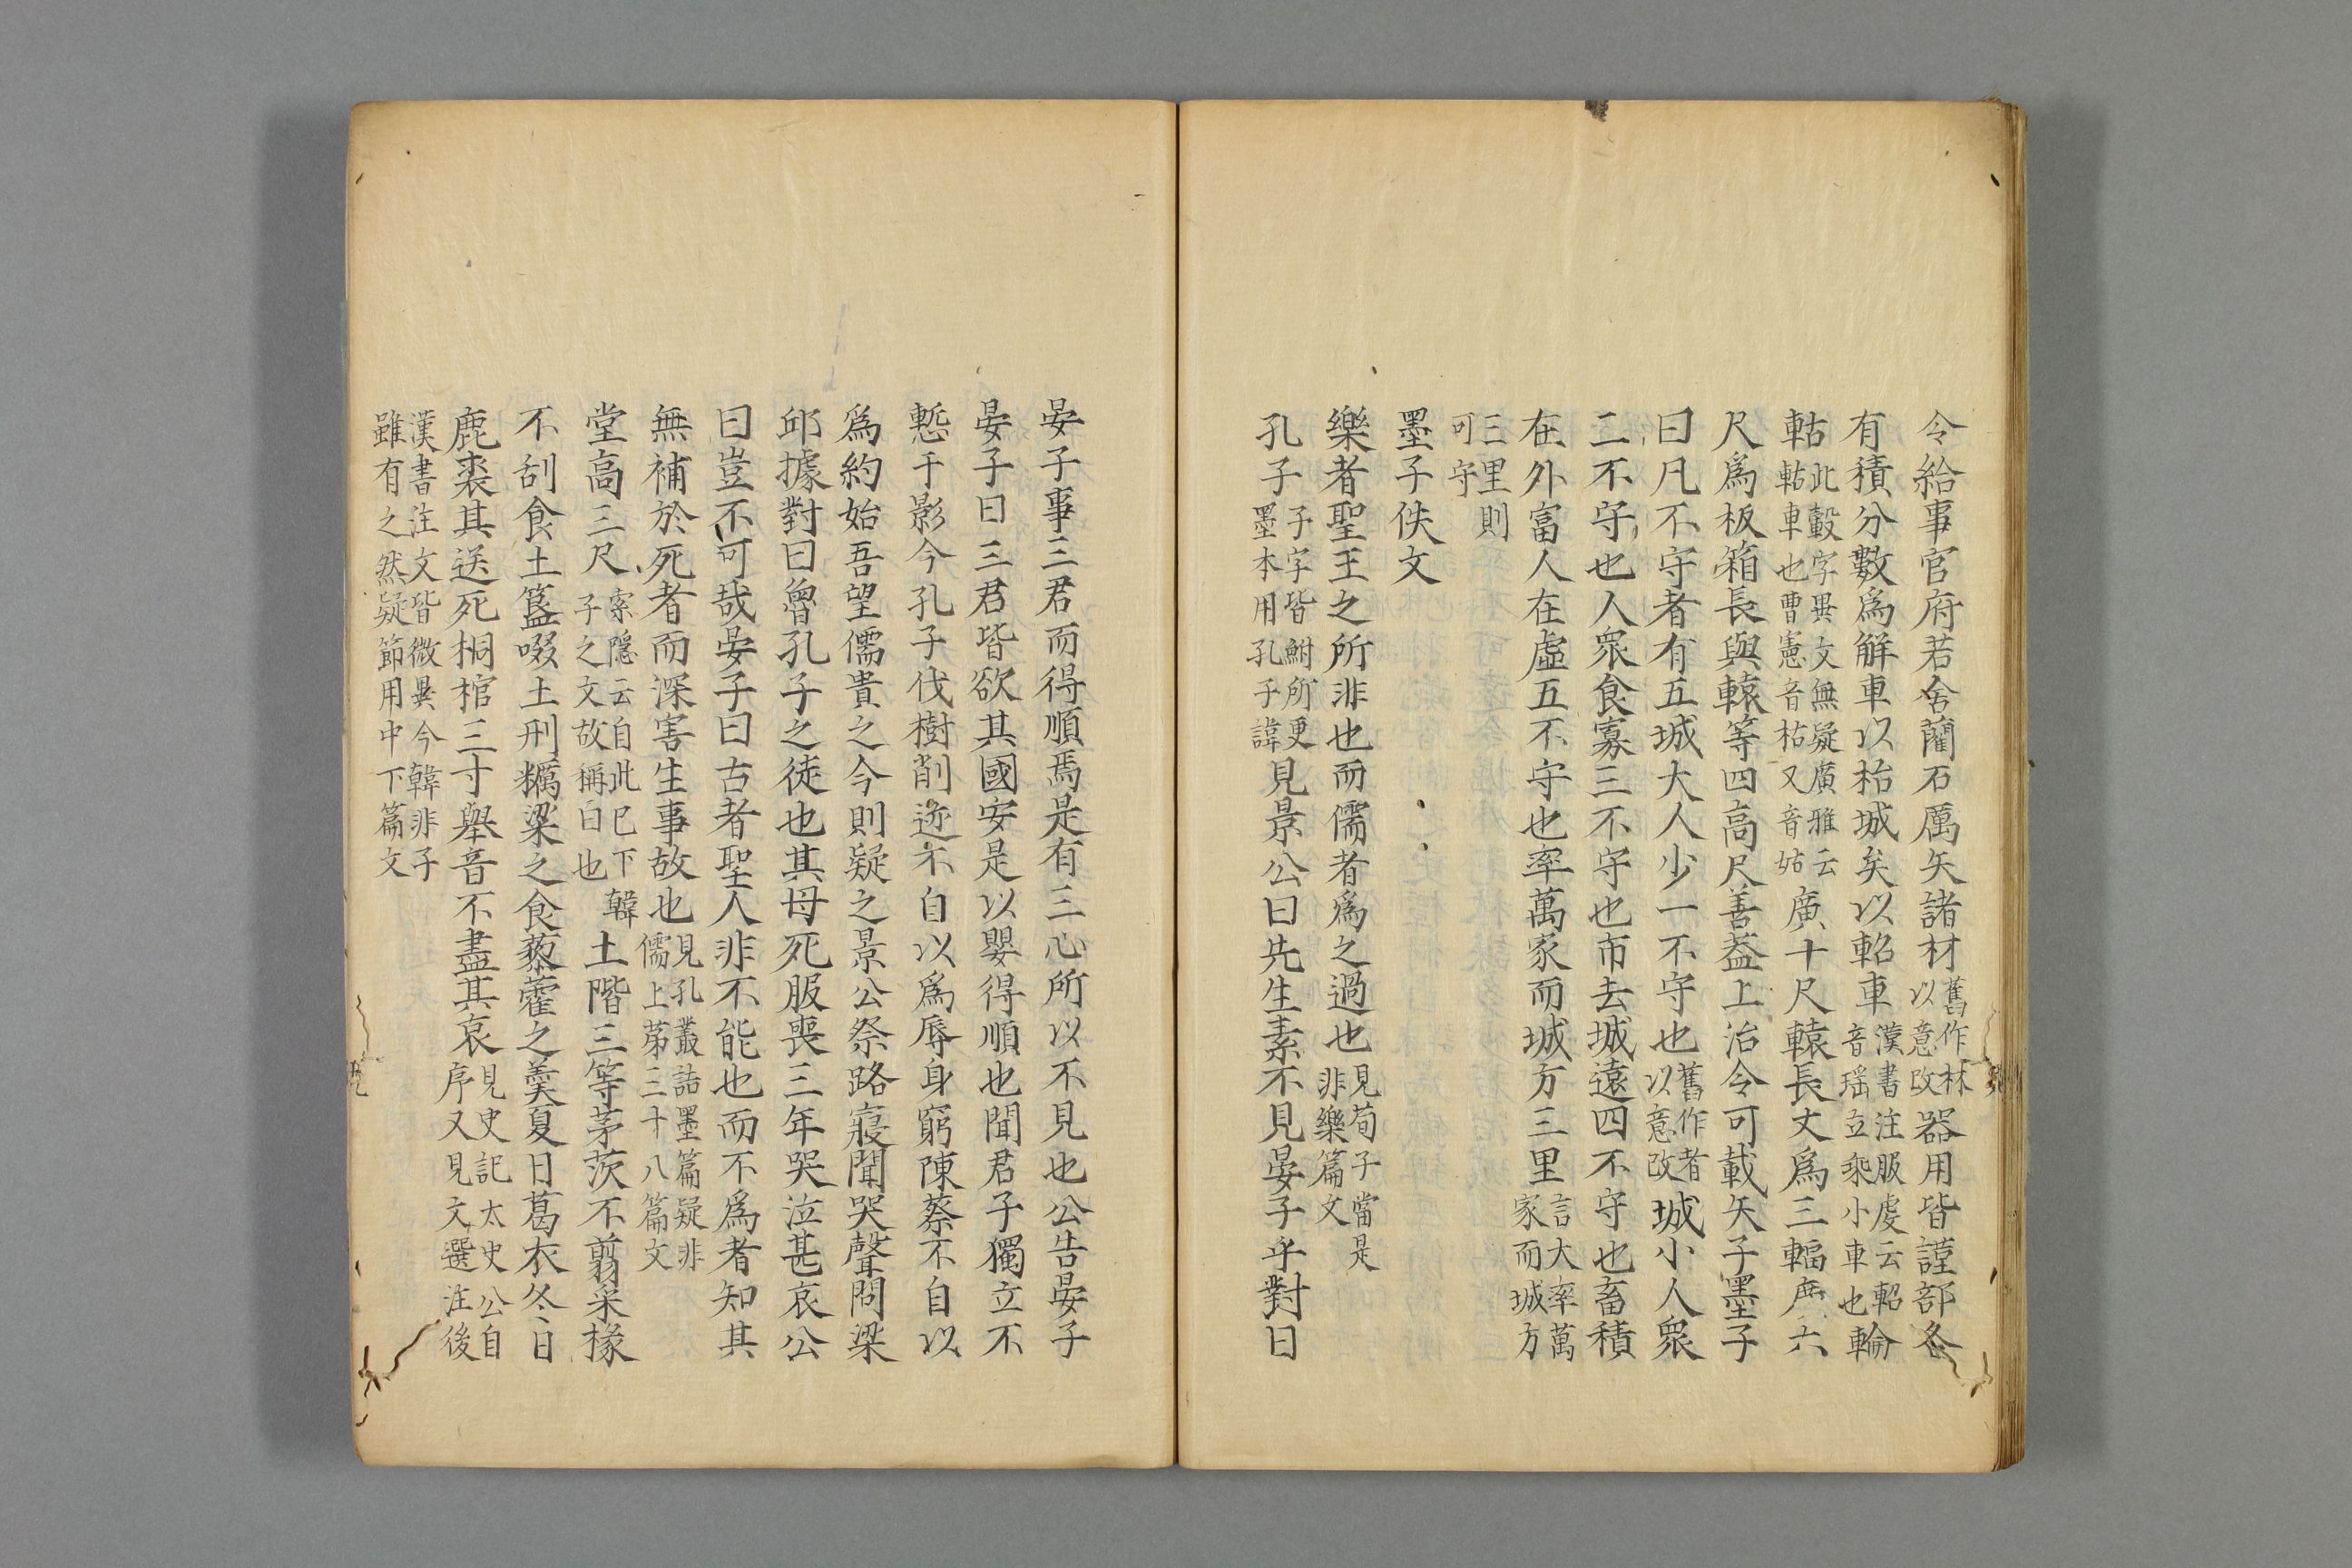 令給事官府若舍藺石厲矢諸材舊作林以意改器用皆謹部各
有積分數爲解車以枱城矣以軺車漢書注服虔云軺音瑶立乘小車也輪
軲此轂字異文無疑廣雅云軲車也曹憲音枯又音姑廣十尺轅長丈爲三輻廣六
尺爲板箱長與轅等四高尺善葢上治令可載矢子墨子
曰凡不守者有五城大人少一不守也舊作者以意改城小人衆
二不守也人衆食寡三不守也市去城遠四不守也畜積
在外富人在虛五不守也率萬家而城方三里言大率萬家而城方
三里則可守
墨子佚文
樂者聖王之所非也而儒者爲之過也見荀子當是非樂篇文
孔子子字皆鮒所更墨本用孔子諱見景公曰先生素不見晏子乎對曰
晏子事三君而得順焉是有三心所以不見也公告晏子
晏子曰三君皆欲其國安是以嬰得順也聞君子獨立不
慙于影今孔子伐樹削迹不自以爲辱身窮陳蔡不自以
爲約始吾望儒貴之今則疑之景公祭路寢聞哭聲問梁
邱據對曰魯孔子之徒也其母死服喪三年哭泣甚哀公
曰豈不可哉晏子曰古者聖人非不能也而不爲者知其
無補於死者而深害生事故也見孔叢詰墨篇疑非儒上苐三十八篇文
堂高三尺索隱云自此巳下韓子之文故稱曰也土階三等茅茨不翦采椽
不刮食土簋啜土刑糲粱之食藜藿之羹夏日葛衣冬日
鹿裘其送死桐棺三寸舉音不盡其哀見史記太史公自序又見文選注後
漢書注文皆微異今韓非子雖有之然疑節用中下篇文